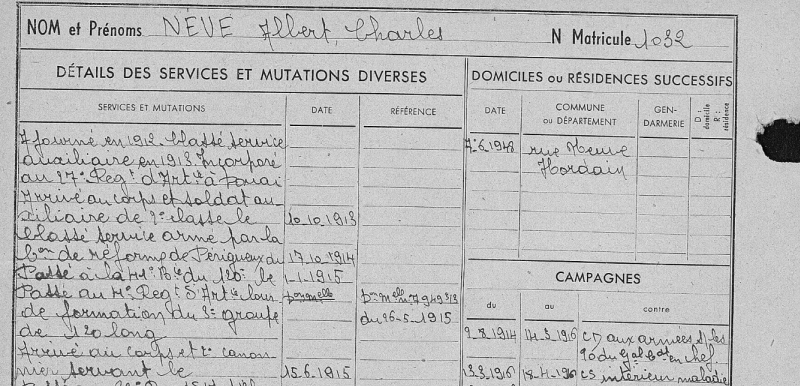 NOM et Prénoms NEVE Albert, Charles N Matricule 1032
DÉTAILS DES SERVICES ET MUTATIONS DIVERSES
SERVICES ET MUTATIONS DATE RÉFÉRENCE
Ajourné en 1912. Classé service
auxiliaire en 1913. Incorporé
au 27e Regt d'Artie à Douai
Arrivé au corps et soldat au-
xiliaire de 2e classe le 10.10.1913
Classé service armé par la
Con de réforme de Périgueux du 17.10.1914
Passé à la 41e Bie du 120e le 1-1-1915
Passé au 4e Regt d'Artie lour
de formation du 3e groupe du 26-5-1915
de 120 long
Arrivé au corps et 2e canon
nier servant le 15.6.1915
DOMICILES ou RÉSIDENCES SUCCESSIFS
DATE COMMUNE ou DÉPARTEMENT GEN- DARMERIE D : domicile R : résidence
7.6.1948 rue Neuve
Hordain
CAMPAGNES
du au contre
2.8.1914 14.3.1916 CD aux armées s/ les
en chef
18.4.1916 CS intérieur maladie